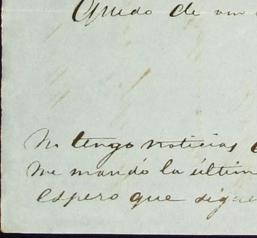 Quedo de un
No tengo noticias
me mandó la últim
espero que sigue